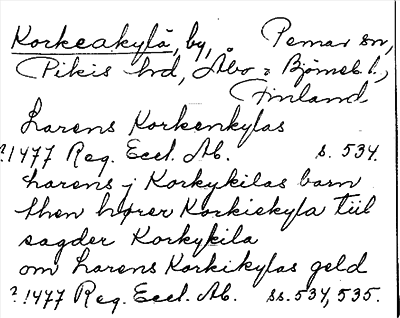 Korkeakylä, by, Pemar sn,
Pikis hd, Åbo o Björneb l.,
Finland
Larens Korkenkylas
?1477 Reg. Eccl. Ab. s. 534.
harens j Korkykilas barn
then hører Korkiekyla tiil
sagder Korkykila
om Larens Korkikylas geld
?1477 Reg. Eccl. Ab. ss. 534, 535.